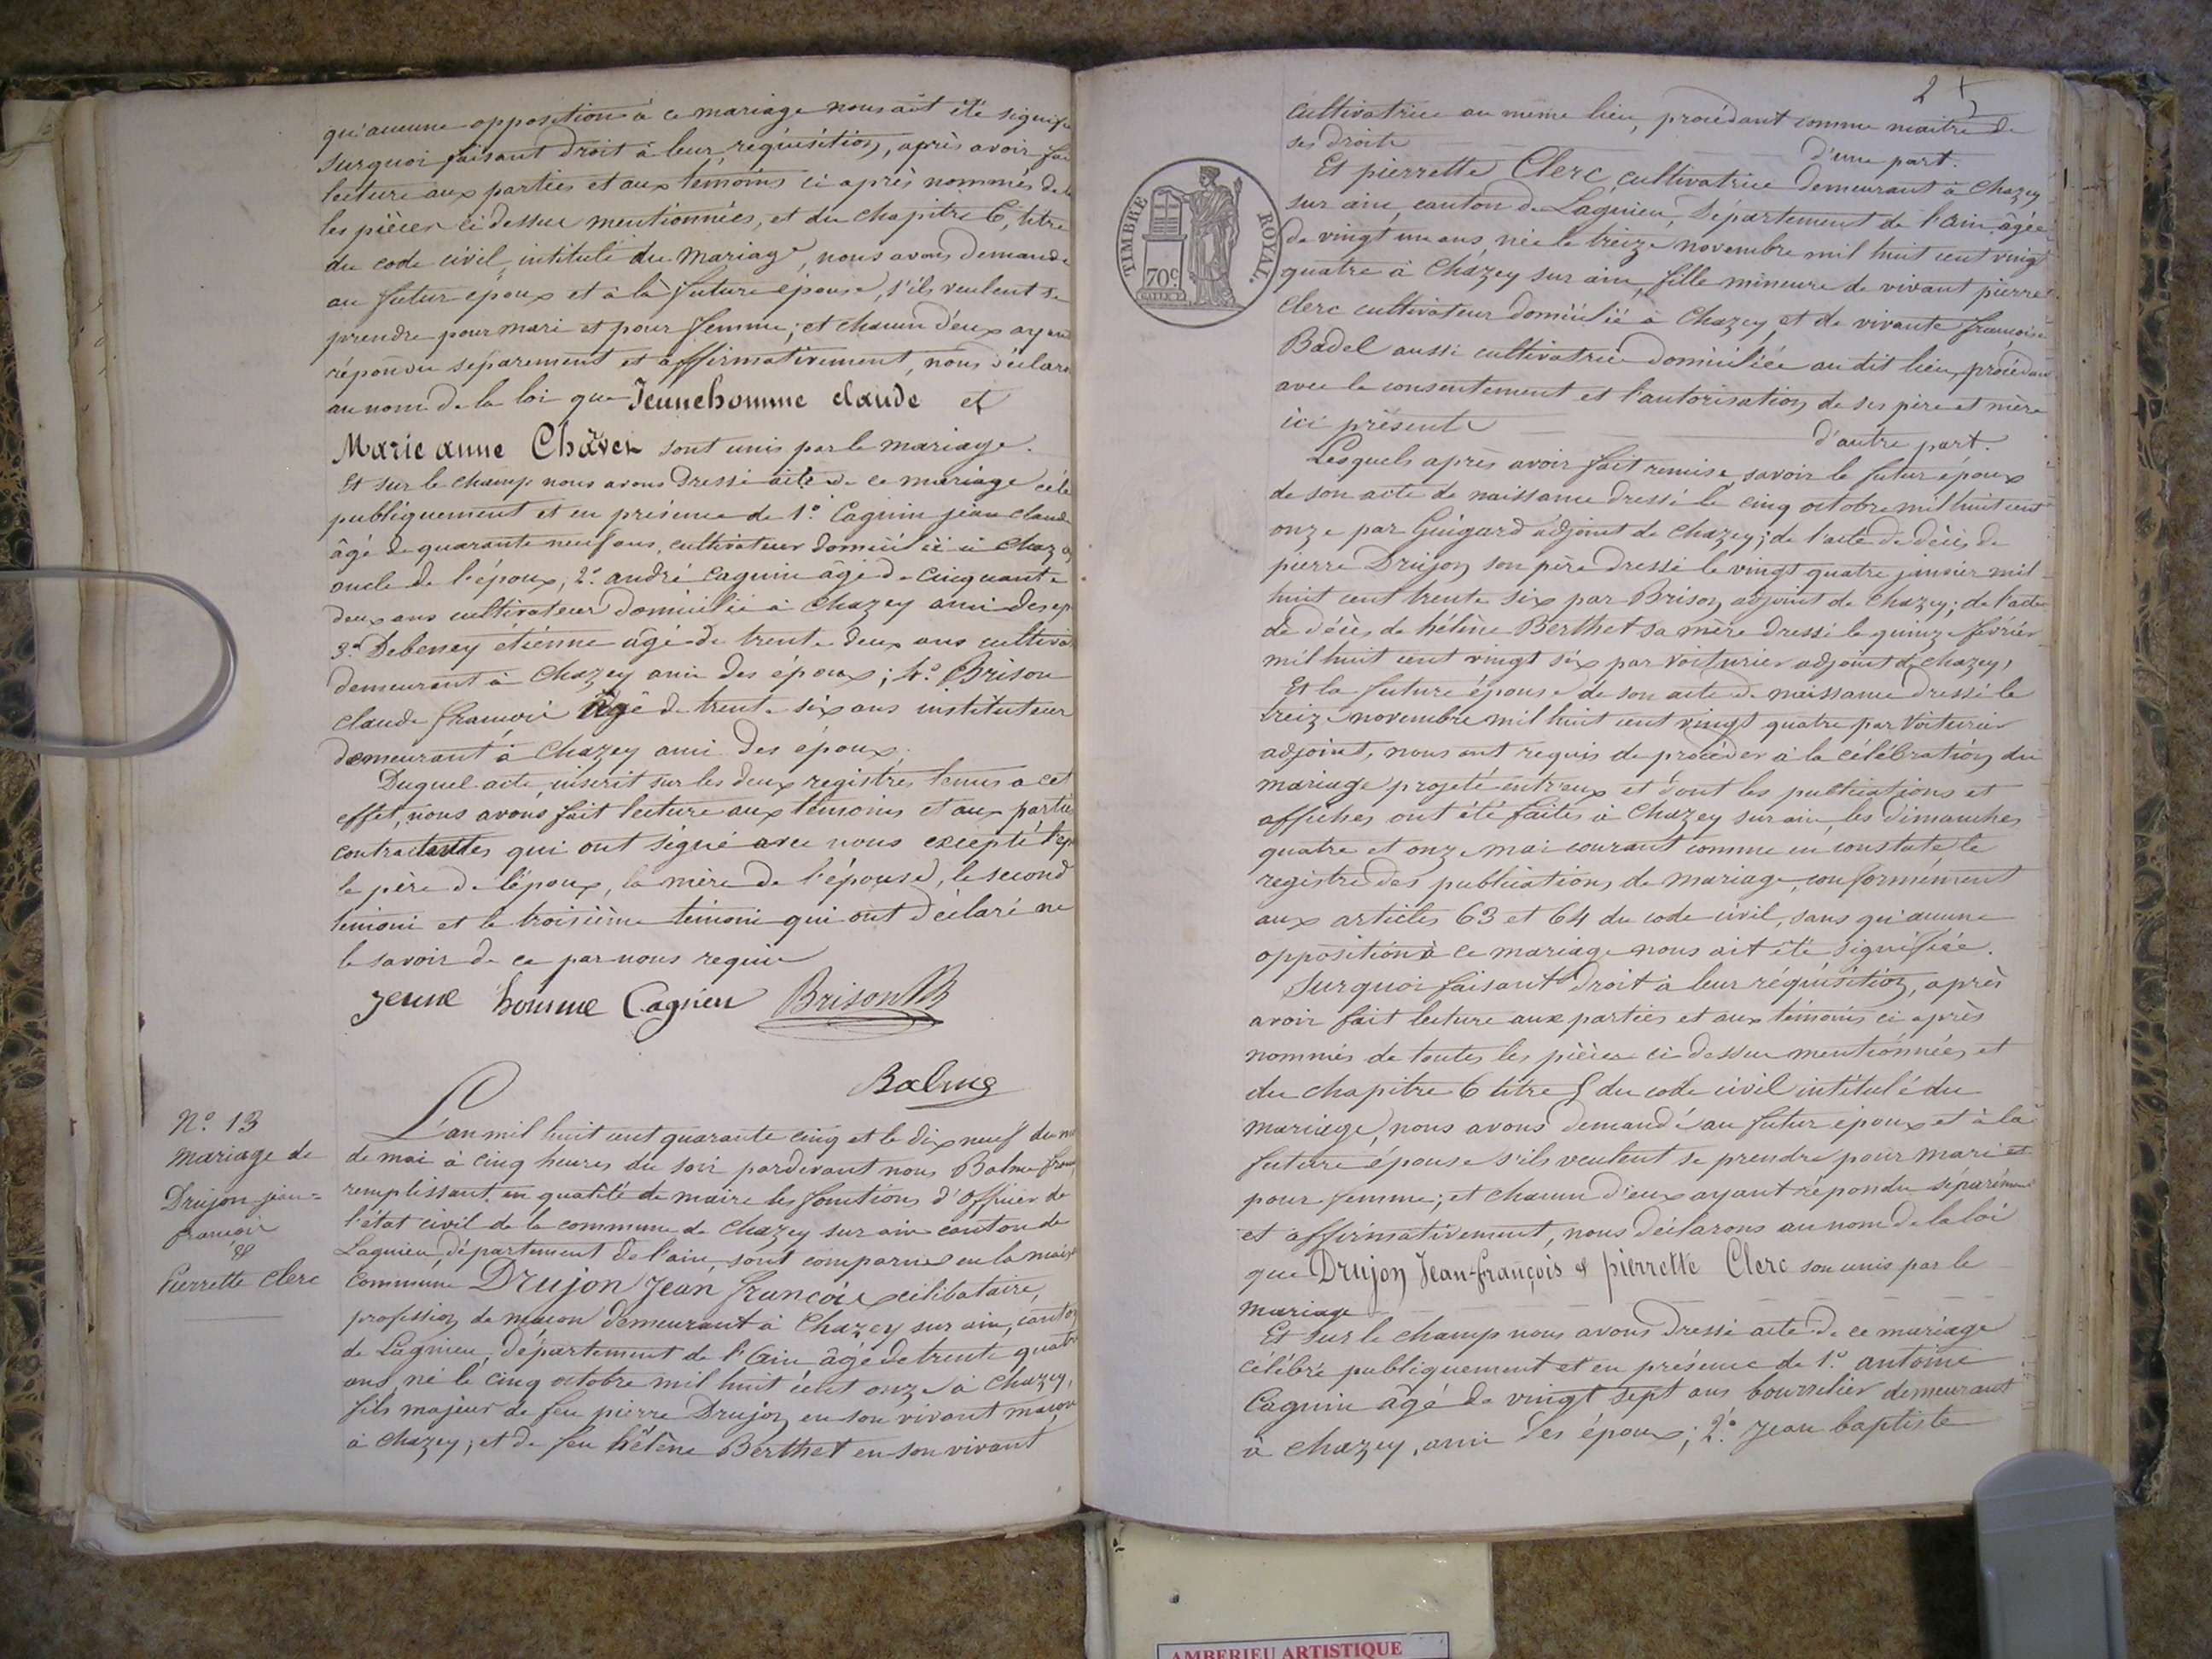 qu'aucune opposition à ce mariage nous ait été signifi
surquoi faisant droit à leur réquisition, après avoir fai
lecture aux parties et aux temoins ci après nommés de
les pièces ci dessus mentionnées, et du chapitre 6, titre
du code civil, intitulé du mariage, nous avons demande
au futur époux et à la future épouse, s'ils veulent se
prendre pour mari et pour femme; et chacun d'eux ayan
répondu séparement et affirmativement, nous déclaro
au nom de la loi que Jeunehomme claude et
Marie anne Chaver sont unis par le mariage.
Et sur le champ nous avons dressé acte de ce mariage célé
publiquement et en présence de 1.° Cagnin jean claude
âgé de quarante neuf ans, cultivateur domicilié à Chazey
oncle de l'époux, 2.° andré Cagnin âgé de cinquante
deux ans cultivateur domicilié à Chazey ami des ép
3.° Debeney etienne âgé de trente deux ans cultiva
demeurant à Chazey ami des époux; 4.° Brison
claude françois âgé de trente six ans instituteur
demeurant à Chazey ami des époux.
Duquel acte, inscrit sur les deux registres tenus a cet
effet, nous avons fait lecture aux témoins et aux parties
contractantes qui ont signé avec nous excepté l'ép
le père de l'époux, la mère de l'épouse, le second
témoin et le troisième témoin qui ont déclaré ne
le savoir de ce par nous requis
jeune homme Cagnieu Brison
Balme
N.° 13
mariage de
Drujon jean=
françois
&
Pierrette Clerc
L'an mil huit cent quarante cinq et le dix neuf du m
de mai à cinq heures du soir pardevant nous Balme
remplissant en qualité de maire les fonctions d'officier de
l'état civil de la commune de Chazey sur ain canton de
Lagnieu, département de l'ain, sont comparus en la mais
commune Drujon Jean françois célibataire,
profession de maçon demeurant à Chazey sur ain, canton
de Lagnieu, département de l'Ain âgé de trente quatre
ans, né le cinq octobre mil huit cent onze à Chazey,
fils majeur de feu pierre Drujon en son vivant maçon
à Chazey; et de feu hélène Berthet en son vivant
2
cultivatrice au même lieu, procédant comme maitre de
ses droits d'une part.
Et pierrette Clerc, cultivatrice demeurant à Chazey
sur ain canton de Lagnieu, département de l'Ain âgée
de vingt un ans, née le treize novembre mil huit cent vingt
quatre à Chazey sur ain, fille mineure de vivant pierre
Clerc cultivateur domicilié à Chazey et de vivante françoise
Badel aussi cultivatrice domiciliée au dit lieu, procédant
avec le consentement et l'autorisation de ses père et mère
ici présents d'autre part.
Lesquels après avoir fait remise, savoir le futur époux
de son acte de naissance dressé le cinq octobre mil huit cent
onze par Guigard adjoint de Chazey; de l'acte de décès de
pierre Drujon son père dressé le vingt quatre janvier mil
huit cent trente six par Brison adjoint de Chazey; de l'acte
de décès de hélène Berthet sa mère dressé le quinze février
mil huit cent vingt six par Voiturier adjoint de Chazey,
Et la future épouse de son acte de naissance dressé le
treize novembre mil huit cent vingt quatre par Voiturier
adjoint, nous ont requis de procéder à la célébration du
mariage projeté entr'eux et dont les publications et
affiches ont été faites à Chazey sur ain, les dimanches
quatre et onze mai courant comme en constate le
registre des publications de mariage, conformément
aux articles 63 et 64 du code civil, sans qu'aucune
opposition à ce mariage nous ait été signifiée.
Surquoi faisant droit à leur réquisition, après
avoir fait lecture aux parties et aux témoins ci après
nommés de toutes les pièces ci dessus mentionnées, et
du chapitre 6 titre 5 du code civil intitulé du
mariage, nous avons demandé au futur époux et à la
future épouse s'ils veulent se prendre pour mari et
pour femme; et chacun d'eux ayant répondu séparément
et affirmativement, nous déclarons au nom de la loi
que Drujon Jean-françois & pierrette Clerc son unis par le
mariage
Et sur le champ nous avons dressé acte de ce mariage
célébré publiquement et en présence de 1.° antoine
Cagnin âgé de vingt sept ans bourrelier demeurant
à Chazey, ami des époux; 2.° Jean baptiste
TIMBRE ROYAL.
70c
AMBERIEU ARTISTIQUE